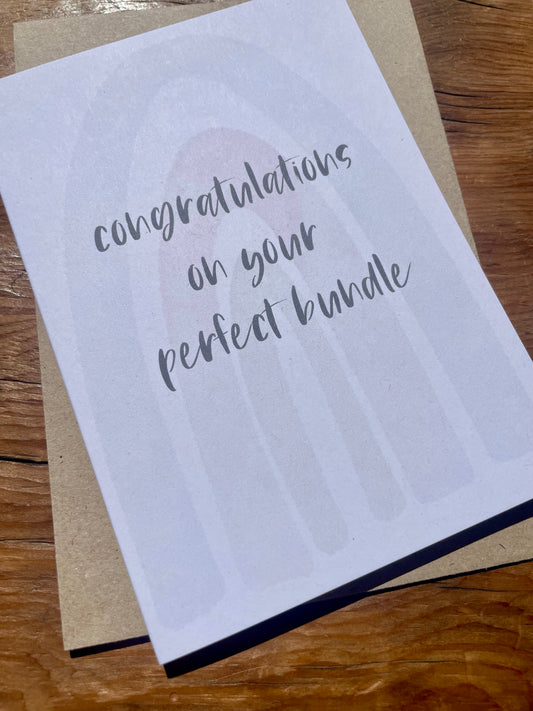 congratulations
on your
perfect bundle